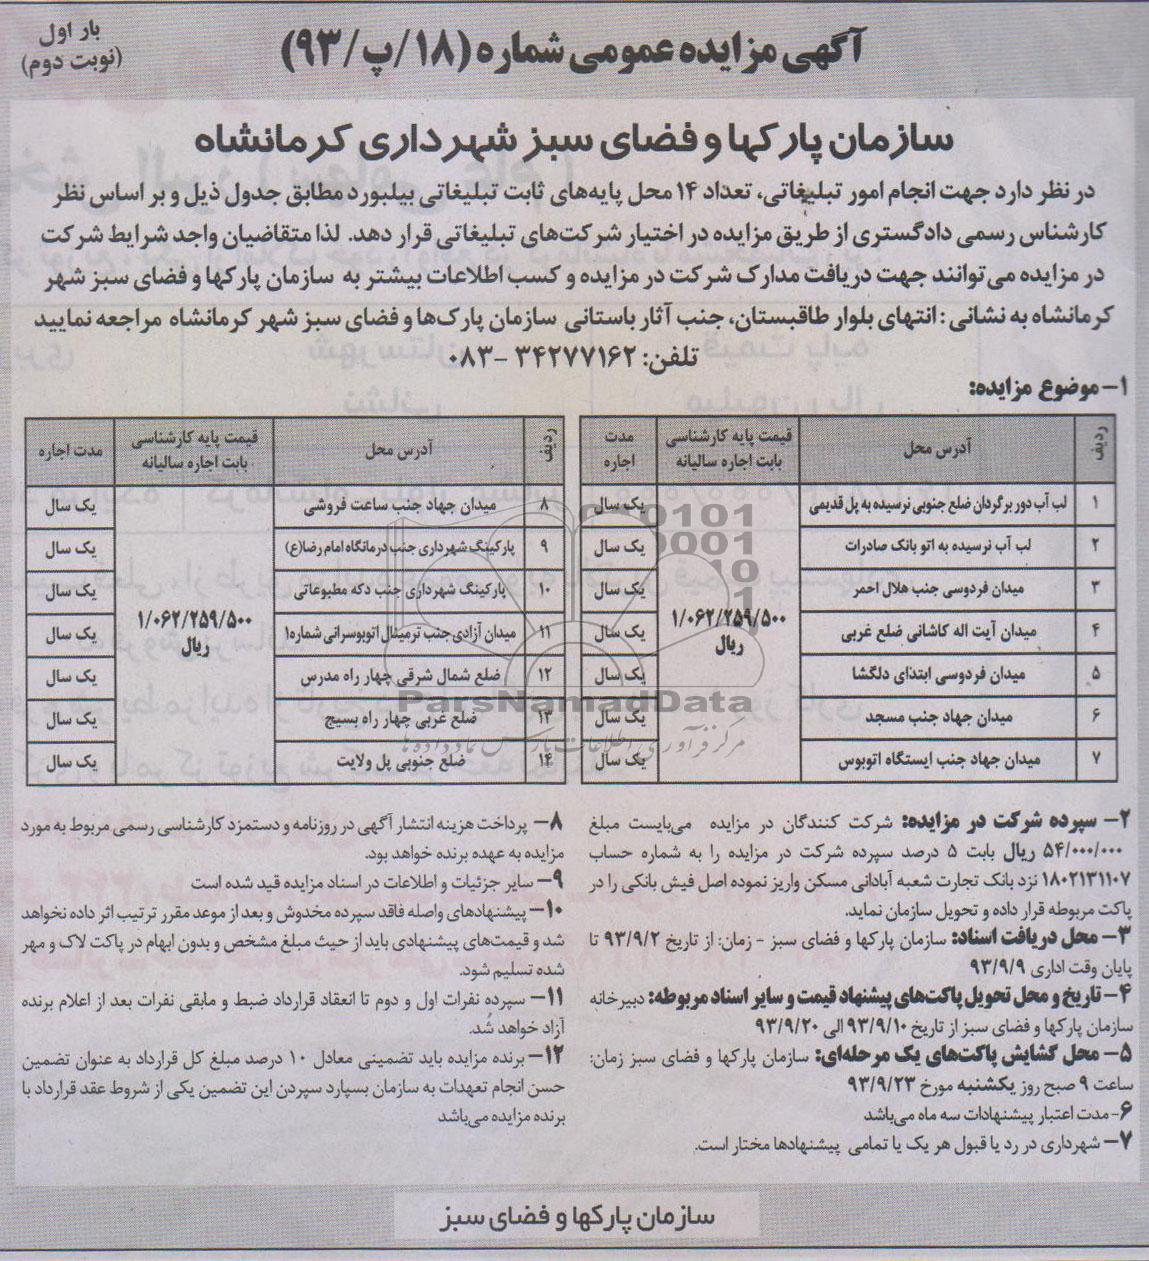 بار اول
(نوبت دوم)
آگهی مزایده عمومی شماره (۱۸/پ/۹۳)
سازمان پارکها و فضای سبز شهرداری کرمانشاه
در نظر دارد جهت انجام امور تبلیغاتی، تعداد ۱۴ محل پایه‌های ثابت تبلیغاتی بیلبورد مطابق جدول ذیل و بر اساس نظر
کارشناس رسمی دادگستری از طریق مزایده در اختیار شرکت‌های تبلیغاتی قرار دهد. لذا متقاضیان واجد شرایط شرکت
در مزایده می‌توانند جهت دریافت مدارک شرکت در مزایده و کسب اطلاعات بیشتر به سازمان پارکها و فضای سبز شهر
کرمانشاه به نشانی : انتهای بلوار طاقبستان، جنب آثار باستانی سازمان پارک‌ها و فضای سبز شهر کرمانشاه مراجعه نمایید
تلفن: ۳۴۲۷۷۱۶۲ -۰۸۳
۱- موضوع مزایده:
ردیف | آدرس محل | قیمت پایه کارشناسی بابت اجاره سالیانه | مدت اجاره
۱ | لب آب دور برگردان ضلع جنوبی نرسیده به پل قدیمی | یک سال
۲ | لب آب نرسیده به اتو بانک صادرات | یک سال
۳ | میدان فردوسی جنب هلال احمر | یک سال
۴ | میدان آیت اله کاشانی ضلع غربی | ۱/۰۶۲/۲۵۹/۵۰۰ ریال | یک سال
۵ | میدان فردوسی ابتدای دلگشا | یک سال
۶ | میدان جهاد جنب مسجد | یک سال
۷ | میدان جهاد جنب ایستگاه اتوبوس | یک سال
ردیف | آدرس محل | قیمت پایه کارشناسی بابت اجاره سالیانه | مدت اجاره
۸ | میدان جهاد جنب ساعت فروشی | یک سال
۹ | پارکینگ شهرداری جنب درمانگاه امام رضا(ع) | یک سال
۱۰ | پارکینگ شهرداری جنب دکه مطبوعاتی | یک سال
۱۱ | میدان آزادی جنب ترمینال اتوبوسرانی شماره۱ | ۱/۰۶۲/۲۵۹/۵۰۰ ریال | یک سال
۱۲ | ضلع شمال شرقی چهار راه مدرس | یک سال
۱۳ | ضلع غربی چهار راه بسیج | یک سال
۱۴ | ضلع جنوبی پل ولایت | یک سال
ParsNamadData
مرکز فرآوری اطلاعات پارس نماد داده ها
۲- سپرده شرکت در مزایده: شرکت کنندگان در مزایده می‌بایست مبلغ
۵۴/۰۰۰/۰۰۰ ریال بابت ۵ درصد سپرده شرکت در مزایده را به شماره حساب
۱۸۰۲۱۳۱۱۰۷ نزد بانک تجارت شعبه آبادانی مسکن واریز نموده اصل فیش بانکی را در
پاکت مربوطه قرار داده و تحویل سازمان نماید.
۳- محل دریافت اسناد: سازمان پارکها و فضای سبز - زمان: از تاریخ ۹۳/۹/۲ تا
پایان وقت اداری ۹۳/۹/۹
۴- تاریخ و محل تحویل پاکت‌های پیشنهاد قیمت و سایر اسناد مربوطه: دبیرخانه
سازمان پارکها و فضای سبز از تاریخ ۹۳/۹/۱۰ الی ۹۳/۹/۲۰
۵- محل گشایش پاکت‌های یک مرحله‌ای: سازمان پارکها و فضای سبز زمان:
ساعت ۹ صبح روز یکشنبه مورخ ۹۳/۹/۲۳
۶- مدت اعتبار پیشنهادات سه ماه می‌باشد
۷- شهرداری در رد یا قبول هر یک یا تمامی پیشنهادها مختار است.
۸- پرداخت هزینه انتشار آگهی در روزنامه و دستمزد کارشناسی رسمی مربوط به مورد
مزایده به عهده برنده خواهد بود.
۹- سایر جزئیات و اطلاعات در اسناد مزایده قید شده است
۱۰- پیشنهادهای واصله فاقد سپرده مخدوش و بعد از موعد مقرر ترتیب اثر داده نخواهد
شد و قیمت‌های پیشنهادی باید از حیث مبلغ مشخص و بدون ابهام در پاکت لاک و مهر
شده تسلیم شود.
۱۱- سپرده نفرات اول و دوم تا انعقاد قرارداد ضبط و مابقی نفرات بعد از اعلام برنده
آزاد خواهد شد.
۱۲- برنده مزایده باید تضمینی معادل ۱۰ درصد مبلغ کل قرارداد به عنوان تضمین
حسن انجام تعهدات به سازمان بسپارد سپردن این تضمین یکی از شروط عقد قرارداد با
برنده مزایده می‌باشد
سازمان پارکها و فضای سبز